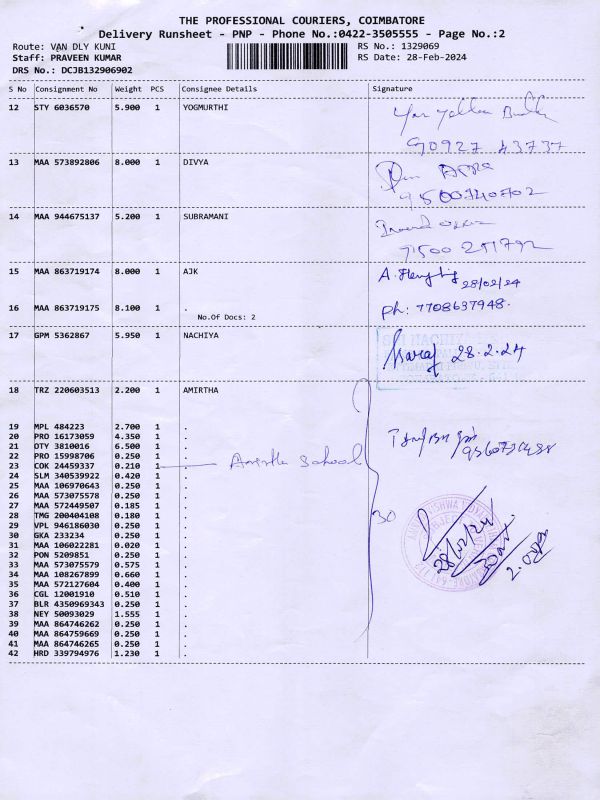 THE PROFESSIONAL COURIERS, COIMBATORE
Delivery Runsheet - PNP - Phone No.:0422-3505555 - Page No.:2
Route: VAN DLY KUNI RS No.: 1329069
Staff: PRAVEEN KUMAR RS Date: 28-Feb-2024
DRS No.: DCJB132906902
S No Consignment No Weight PCS Consignee Details Signature
12 STY 6036570 5.900 1 YOGMURTHI
90927 43737
13 MAA 573892806 8.000 1 DIVYA
9500740702
14 MAA 944675137 5.200 1 SUBRAMANI
7500 251792
15 MAA 863719174 8.000 1 AJK
28/02/24
16 MAA 863719175 8.100 1 .
Ph: 7708637948.
No.Of Docs: 2
17 GPM 5362867 5.950 1 NACHIYA
28.2.24
18 TRZ 220603513 2.200 1 AMIRTHA
19 MPL 484223 2.700 1 .
20 PRO 16173059 4.350 1 .
21 OTY 3810016 6.500 1 .
22 PRO 15998706 0.250 1 .
23 COK 24459337 0.210 1 . School
24 SLM 340539922 0.420 1 .
25 MAA 106970643 0.250 1 .
26 MAA 573075578 0.250 1 .
27 MAA 572449507 0.185 1 .
28 TMG 200404108 0.180 1 . 30
29 VPL 946186030 0.250 1 .
30 GKA 233234 0.250 1 .
31 MAA 106022281 0.020 1 .
32 PON 5209851 0.250 1 .
33 MAA 573075579 0.575 1 .
34 MAA 108267899 0.660 1 .
35 MAA 572127604 0.400 1 .
36 CGL 12001910 0.510 1 .
37 BLR 4350969343 0.250 1 .
38 NEY 50093029 1.555 1 .
39 MAA 864746262 0.250 1 .
40 MAA 864759669 0.250 1 .
41 MAA 864746265 0.250 1 .
42 HRD 339794976 1.230 1 .